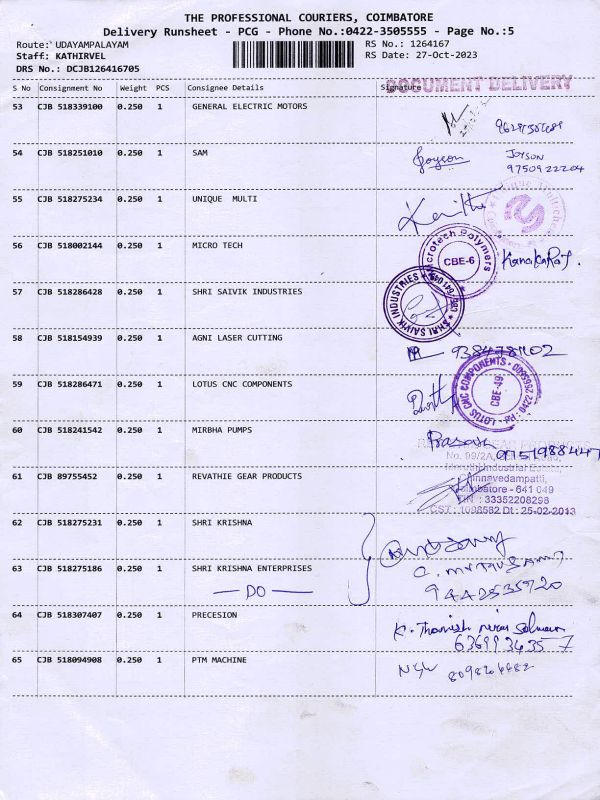 THE PROFESSIONAL COURIERS, COIMBATORE
Delivery Runsheet - PCG - Phone No.:0422-3505555 - Page No.:5
Route: UDAYAMPALAYAM RS No.: 1264167
Staff: KATHIRVEL RS Date: 27-Oct-2023
DRS No.: DCJB126416705
DOCUMENT DELIVERY
S No Consignment No Weight PCS Consignee Details Signature
53 CJB 518339100 0.250 1 GENERAL ELECTRIC MOTORS
54 CJB 518251010 0.250 1 SAM Joyson JOYSON
9750922204
55 CJB 518275234 0.250 1 UNIQUE MULTI
56 CJB 518002144 0.250 1 MICRO TECH Microtech Polymers CBE-6 KanakaRaj.
57 CJB 518286428 0.250 1 SHRI SAIVIK INDUSTRIES SHRI SAIVIK INDUSTRIES
58 CJB 518154939 0.250 1 AGNI LASER CUTTING
59 CJB 518286471 0.250 1 LOTUS CNC COMPONENTS LOTUS CNC COMPONENTS CBE-49
60 CJB 518241542 0.250 1 MIRBHA PUMPS
61 CJB 89755452 0.250 1 REVATHIE GEAR PRODUCTS
No. 99/2A,
Maruthi Industrial Estate,
Chinnavedampatti,
Coimbatore - 641 049
TIN : 33352208298
CST : 1098582 Dt : 25-02-2013
62 CJB 518275231 0.250 1 SHRI KRISHNA
63 CJB 518275186 0.250 1 SHRI KRISHNA ENTERPRISES
— DO — 9442535920
64 CJB 518307407 0.250 1 PRECESION
65 CJB 518094908 0.250 1 PTM MACHINE